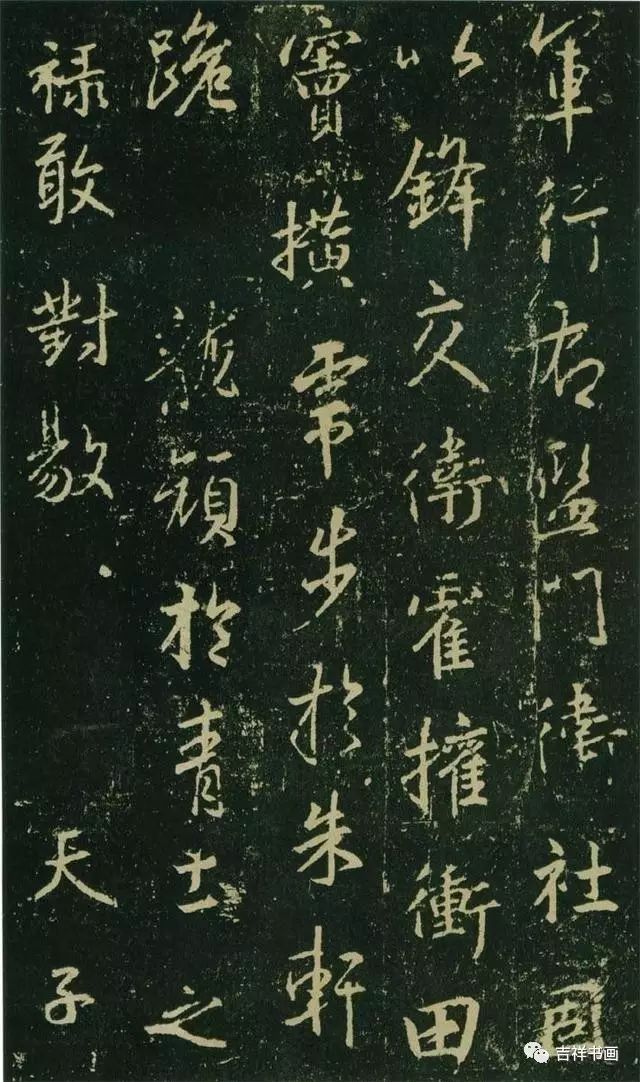 軍行右監門社固
以鋒交衛霍擁衝田
竇橫虎步於朱軒
龍於青土之
祿敢對敭天子
吉祥书画